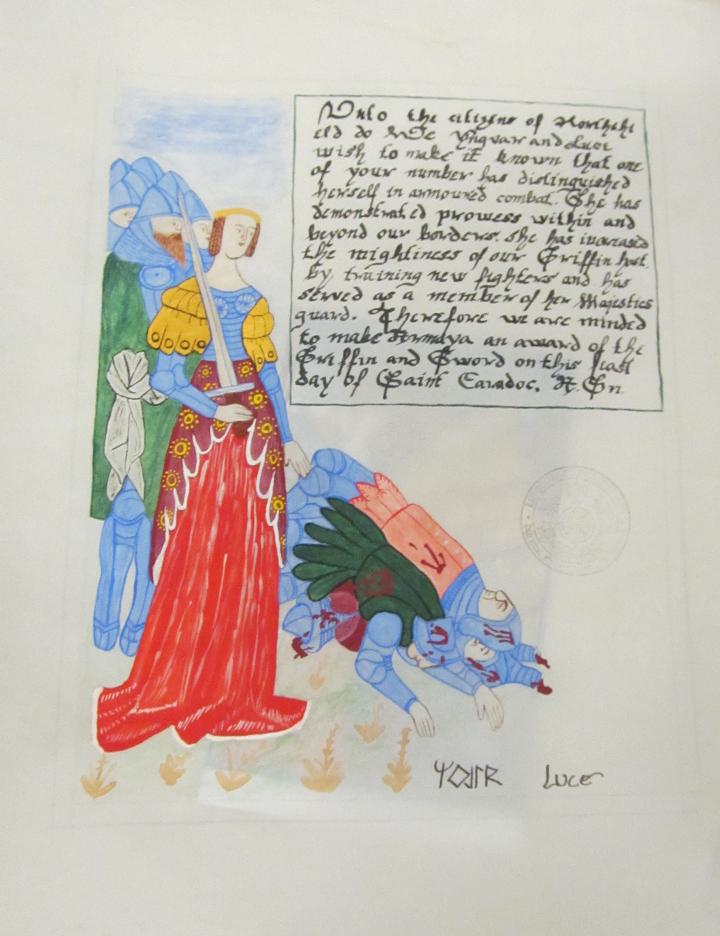 Unto the citizens of Northshi
eld do We Yngvar and Luce
wish to make it known that one
of your number has distinguished
herself in armoured combat. She has
demonstrated prowess within and
beyond our borders. she has increased
the mightiness of our Griffin host
by training new fighters and has
served as a member of her Majesties
guard. Therefore we are minded
to make an award of the
Griffin and Sword on this feast
day of Saint Caradoc. A.S.
Luce